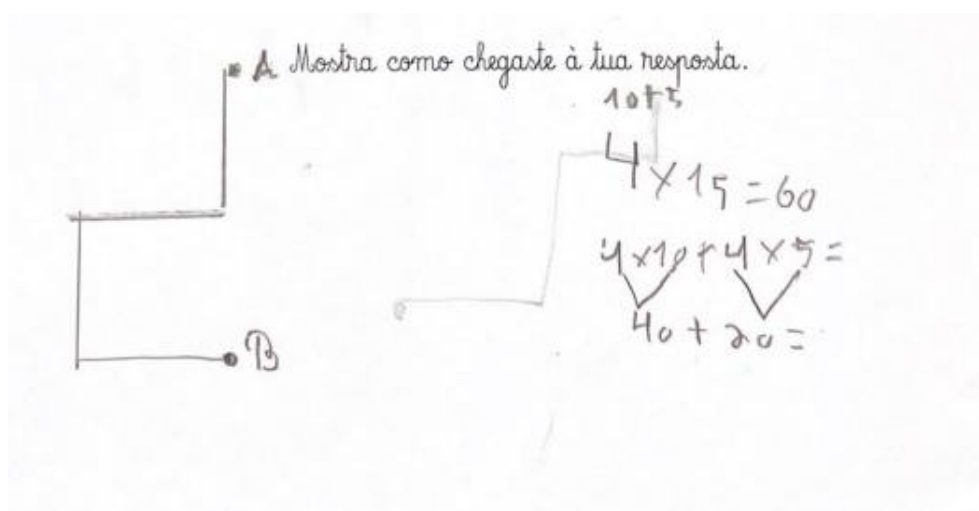 A Mostra como chegaste à tua resposta.
10+5
4 x 15 = 60
4 x 10 + 4 x 5 =
40 + 20 =
B